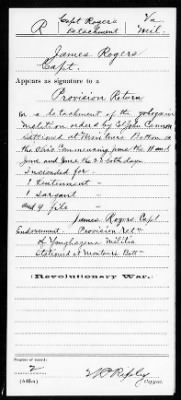 R Capt Rogers Detachment Va Mil.
James Rogers
Capt.
Appears as signature to a
Provision Return
for a detachment of the yohogain
Maletion orders by Col John Cannon
stationed at Monture Bottom on
the Ohio Commencing June the 11 and
June and June the 23 both days
Inscented for -
1 Lieutenant -
1 Sargant
and 9 file
James Rogers Capt
Endorsement: Provision ret
of Youghagena Militia
Stationed at Monture Bott
Revolutionary War.
Number of record:
2
Copyist.